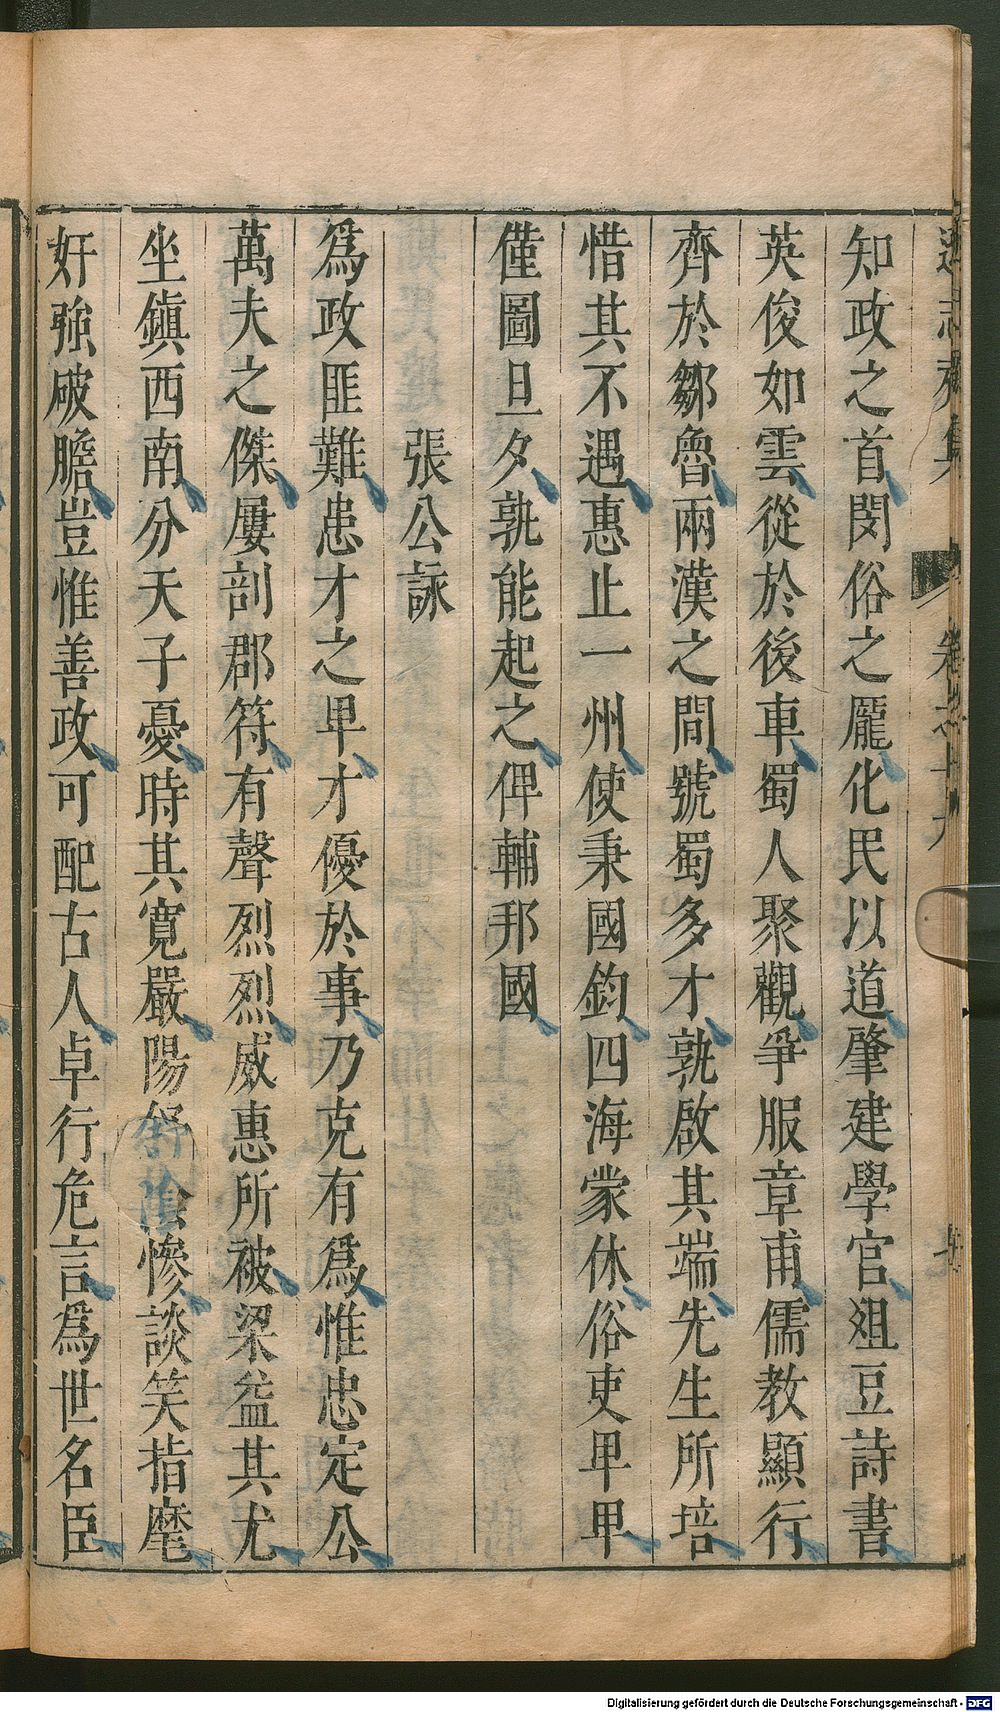 遜志齋集 卷之十九
知政之首閔俗之厖化民以道肇建學宮爼豆詩書
英俊如雲從於後車蜀人聚觀爭服章甫儒教顯行
齊於鄒魯兩漢之間號蜀多才孰啟其端先生所培
惜其不遇惠止一州使秉國鈞四海蒙休俗吏卑卑
僅圖旦夕孰能起之俾輔邦國
張公詠
爲政匪難患才之卑才優於事乃克有爲惟忠定公
萬夫之傑屢剖郡符有聲烈烈威惠所被梁益其尤
坐鎮西南分天子憂時其寛嚴陽舒陰慘談笑指麾
奸強破膽豈惟善政可配古人卓行危言爲世名臣
Digitalisierung gefördert durch die Deutsche Forschungsgemeinschaft - DFG